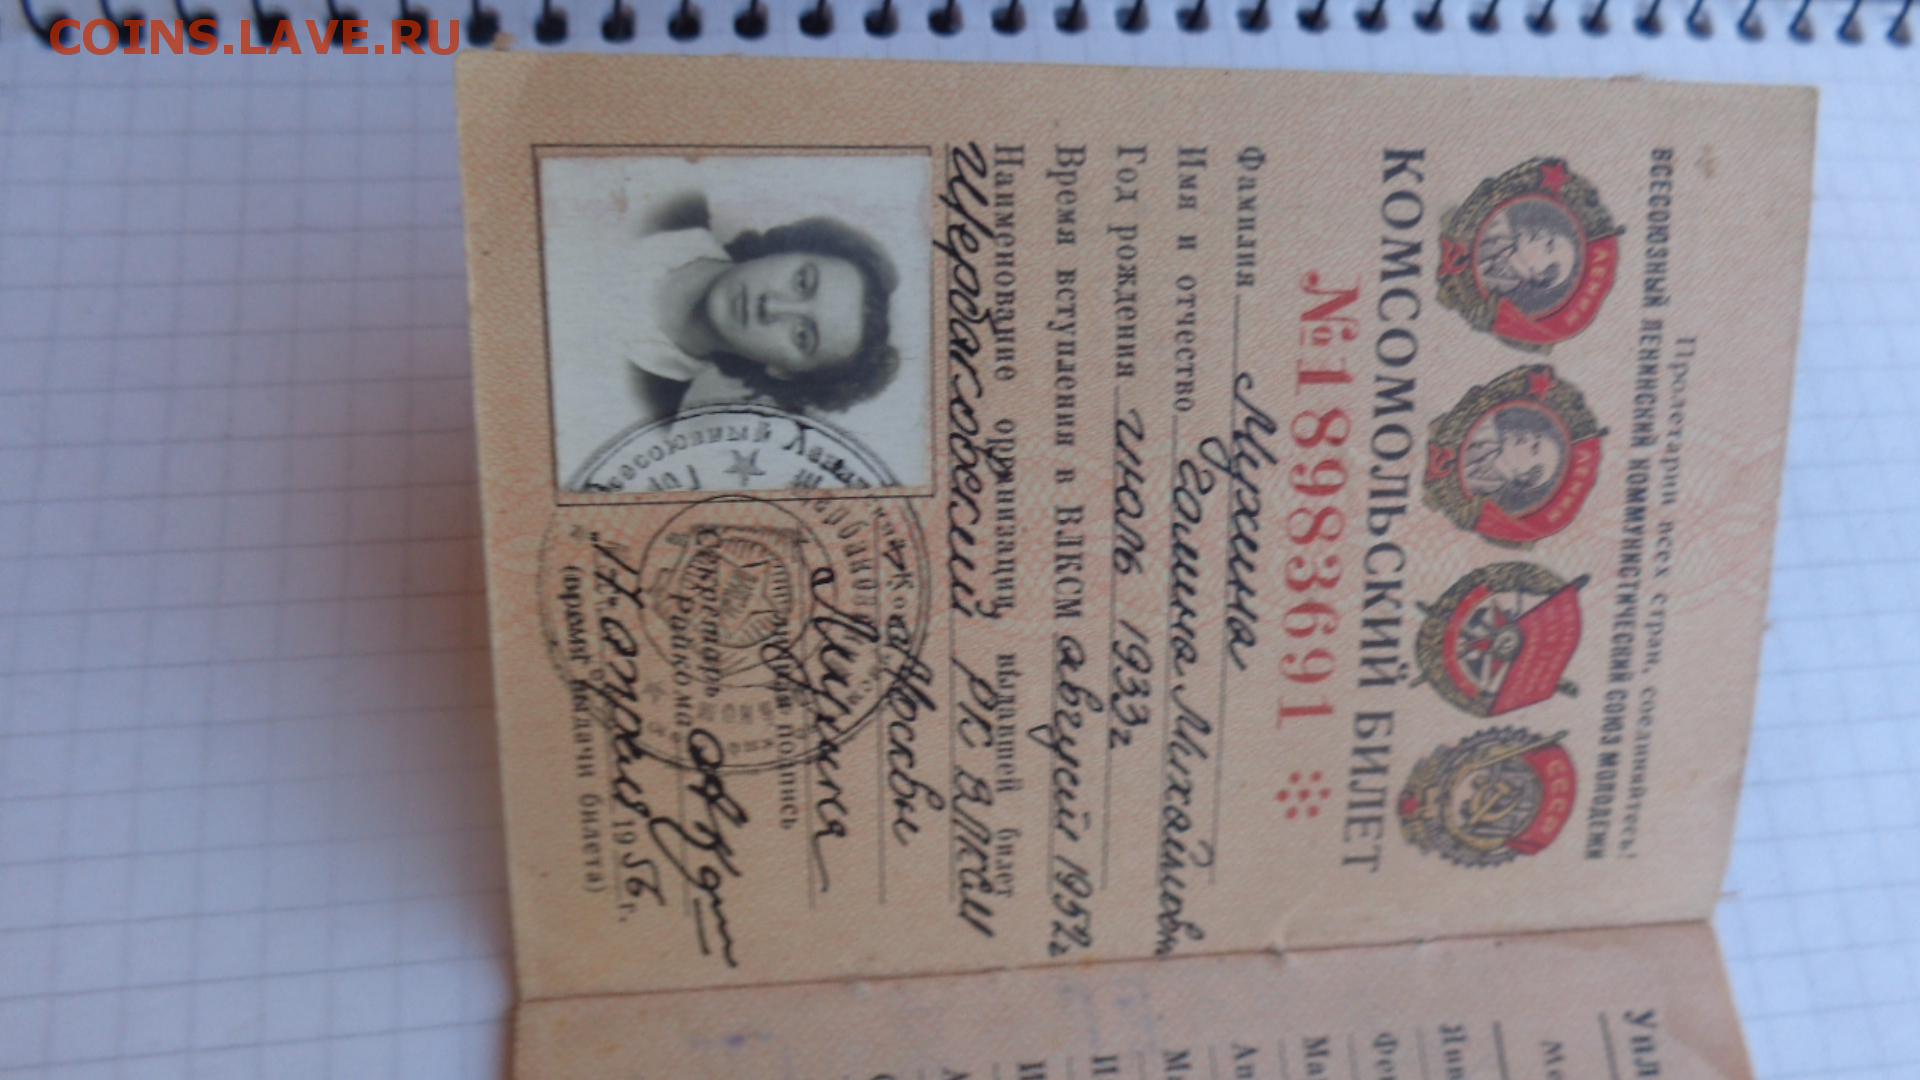 COINS.LAVE.RU
Пролетарии всех стран, соединяйтесь!
ВСЕСОЮЗНЫЙ ЛЕНИНСКИЙ КОММУНИСТИЧЕСКИЙ СОЮЗ МОЛОДЕЖИ
ЛЕНИН
ЛЕНИН
СССР
КОМСОМОЛЬСКИЙ БИЛЕТ
№18983691
Фамилия Мухина
Имя и отчество Галина Михайловн
Год рождения июль 1933г
Время вступления в ВЛКСМ август 1952г
Наименование организации, выдавшей билет
Щербаковский РК ВЛКСМ
Москвы
подпись
Секретарь
Райкома
"17" апреля 1956 г.
(Время выдачи билета)
Упл
Янв
Фе
Ма
Ап
Ма
И
И
А